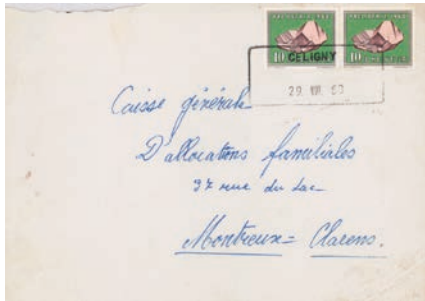 PRO PATRIA 1960 PRO PATRIA 1960
10 HELVETIA 10 HELVETIA
CÉLIGNY
29. VIII. 60
Caisse générale
D'allocations familiales
37 rue du Lac
Montreux = Clarens.